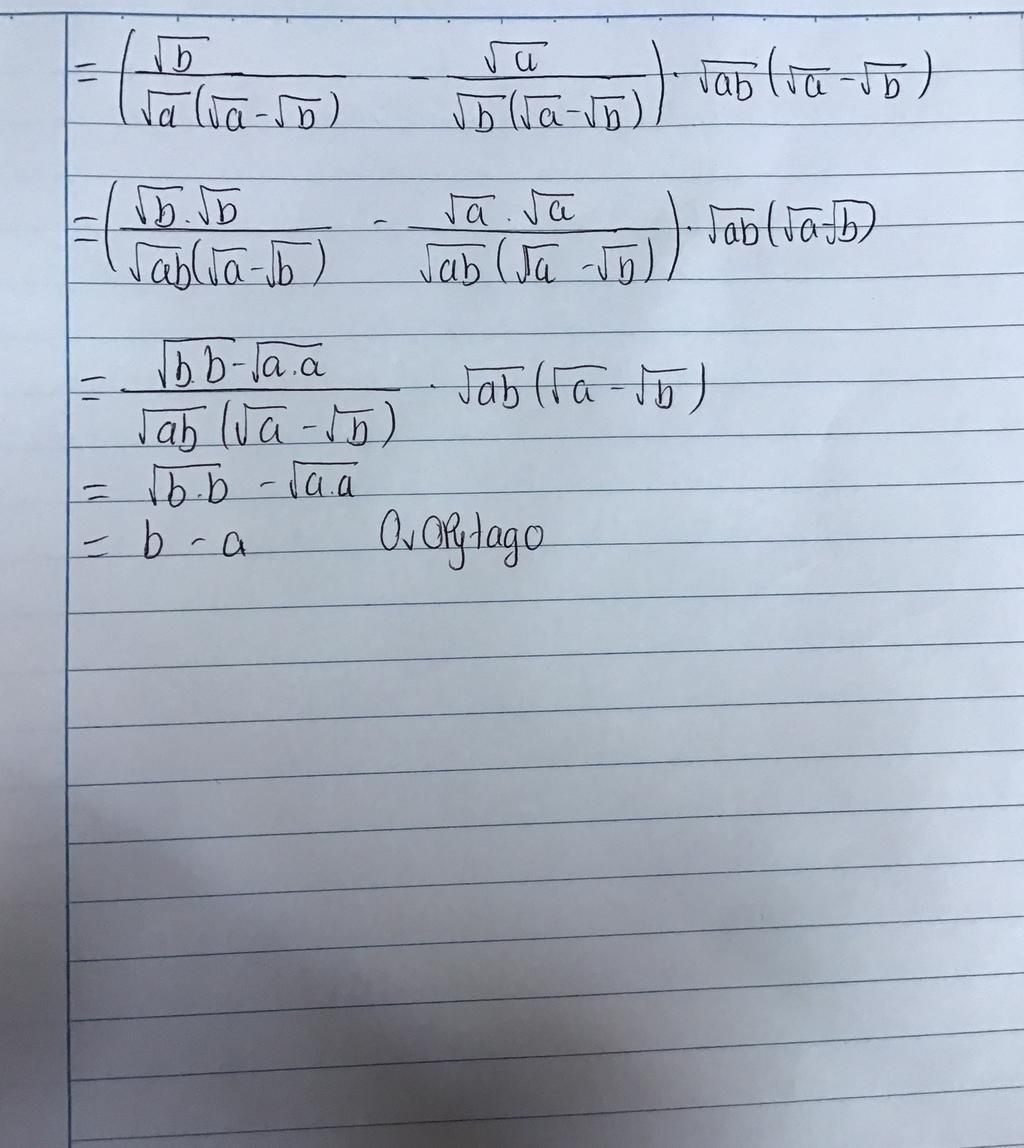 = (√b / √a(√a-√b) - √a / √b(√a-√b)) · √ab (√a-√b)
= (√b.√b / √ab(√a-√b) - √a.√a / √ab(√a-√b)) · √ab(√a-√b)
= √b.b-√a.a / √ab(√a-√b) · √ab(√a-√b)
= √b.b - √a.a
= b - a OvOPytago